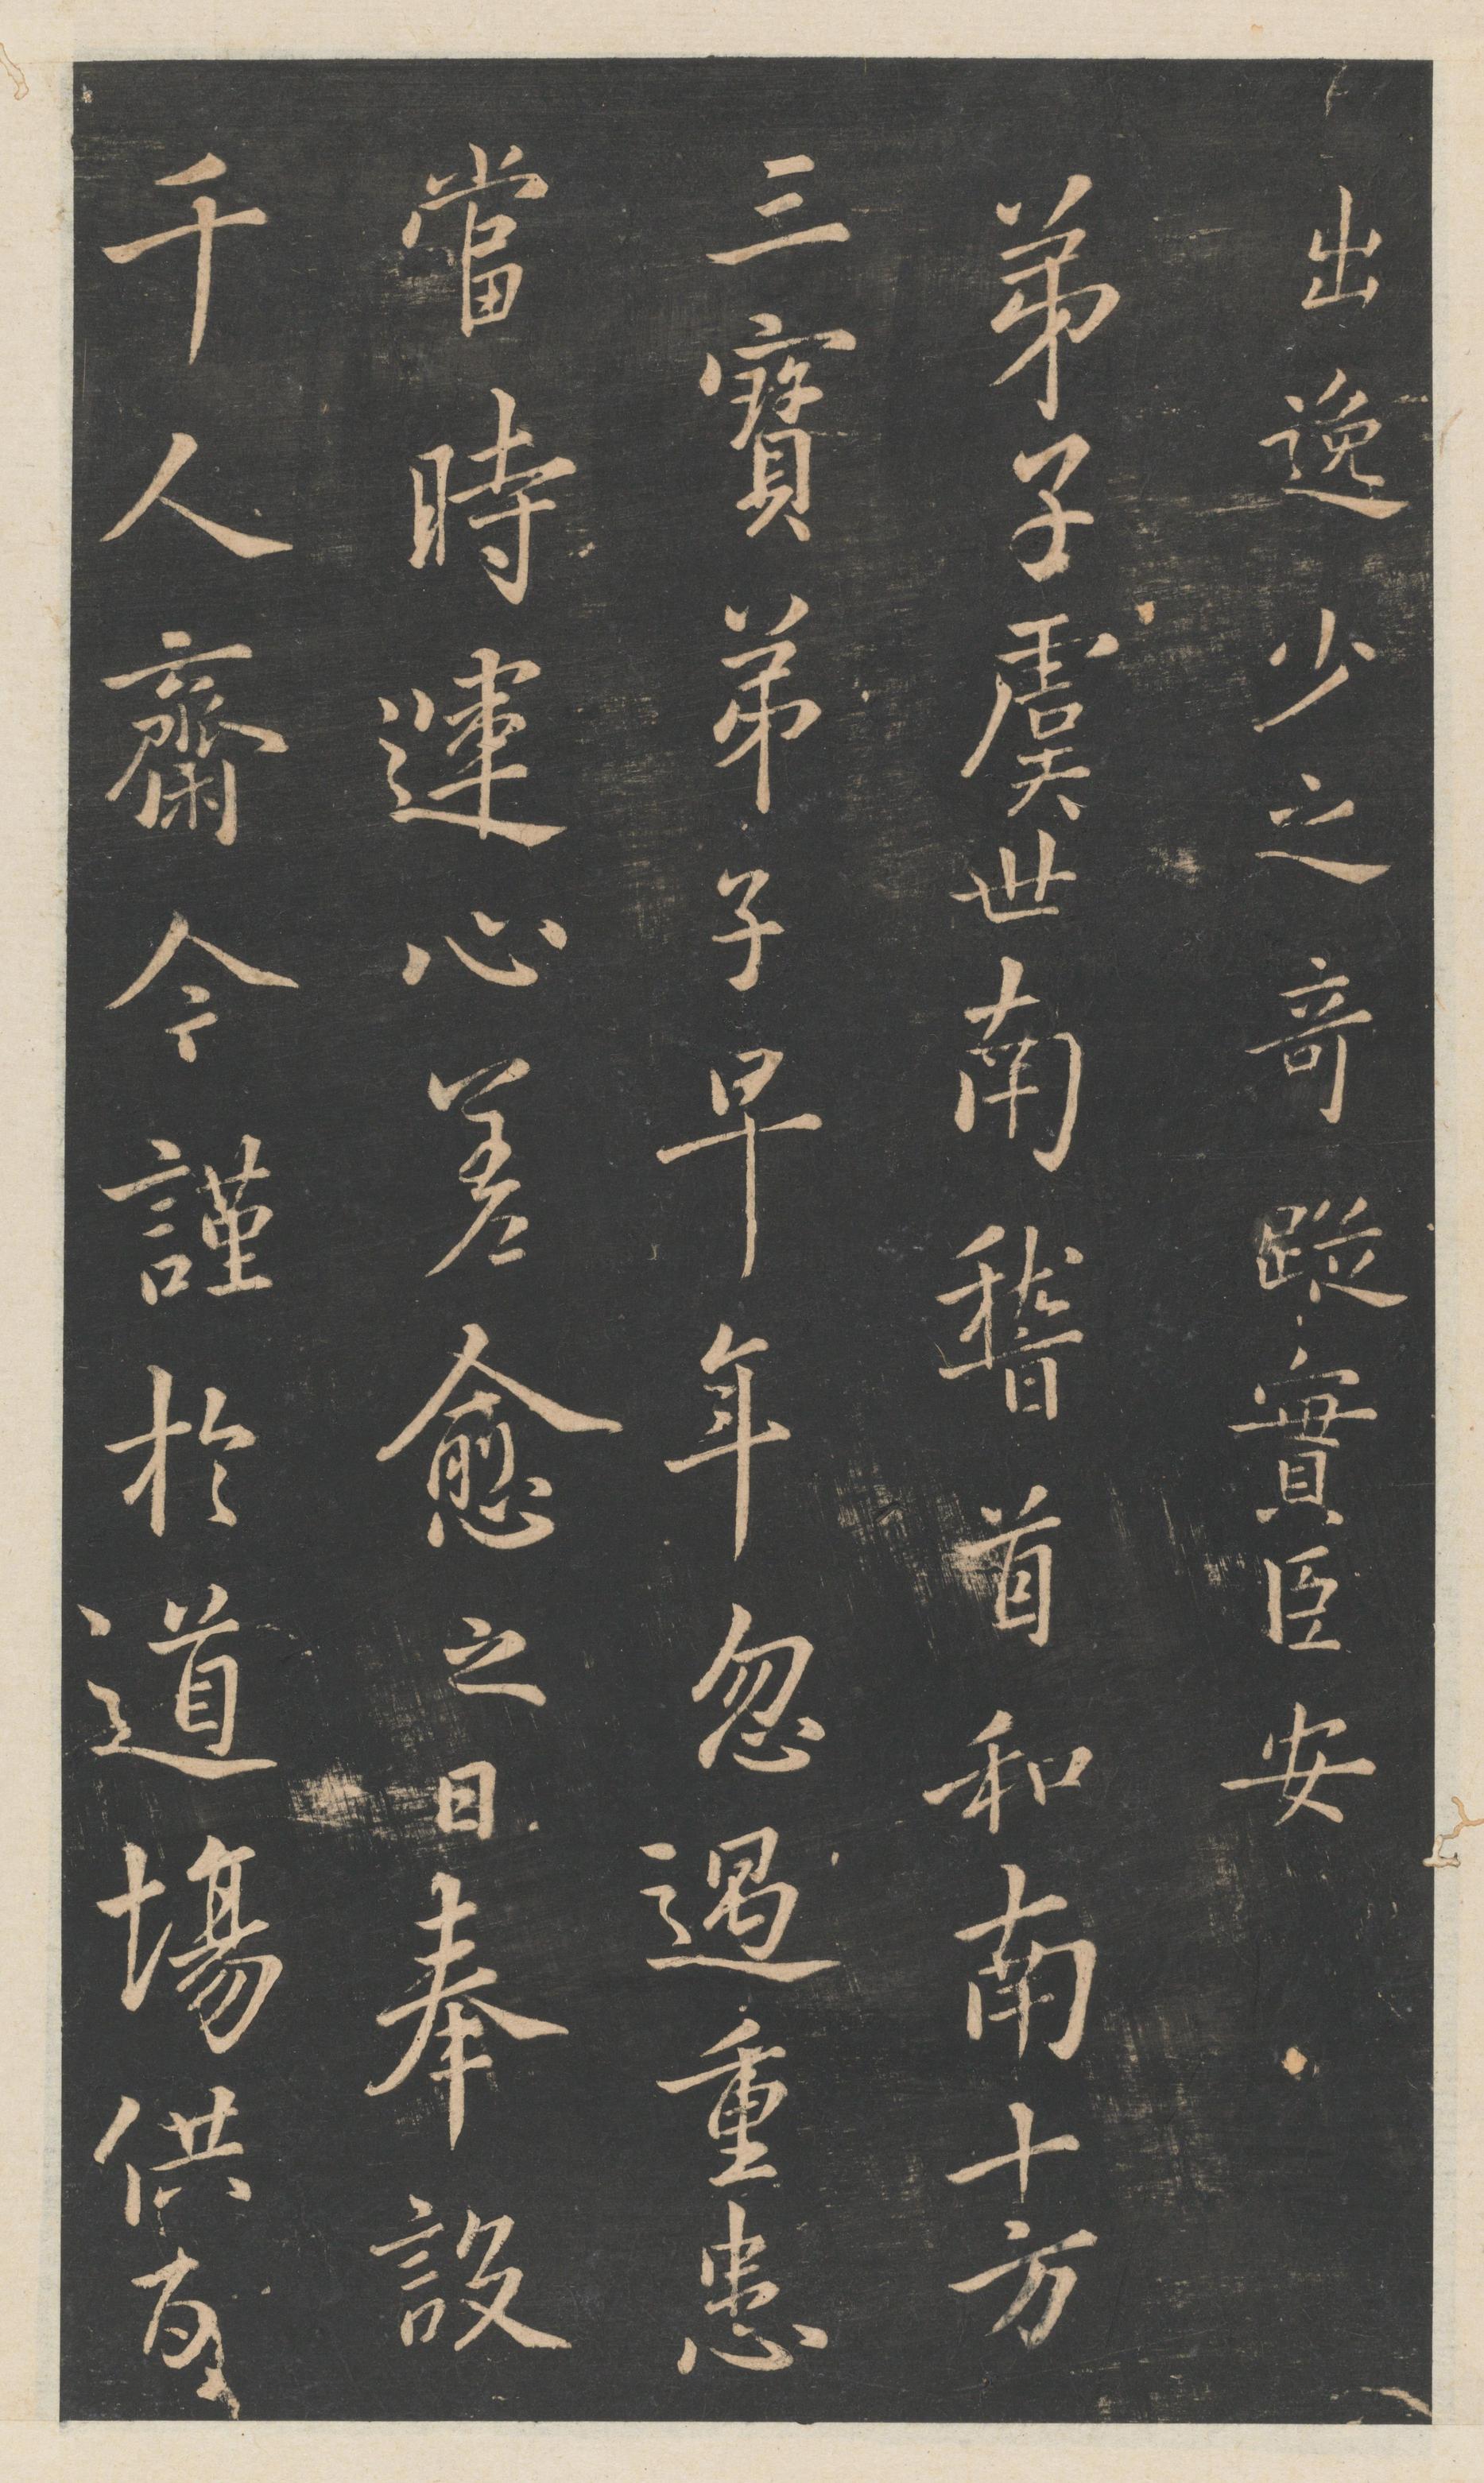 出逸少之竒蹤實臣安
弟子虞世南稽首和南十方
三寶弟子早年忽遇重患
當時運心差愈之日奉設
千人齋今謹於道塲供百